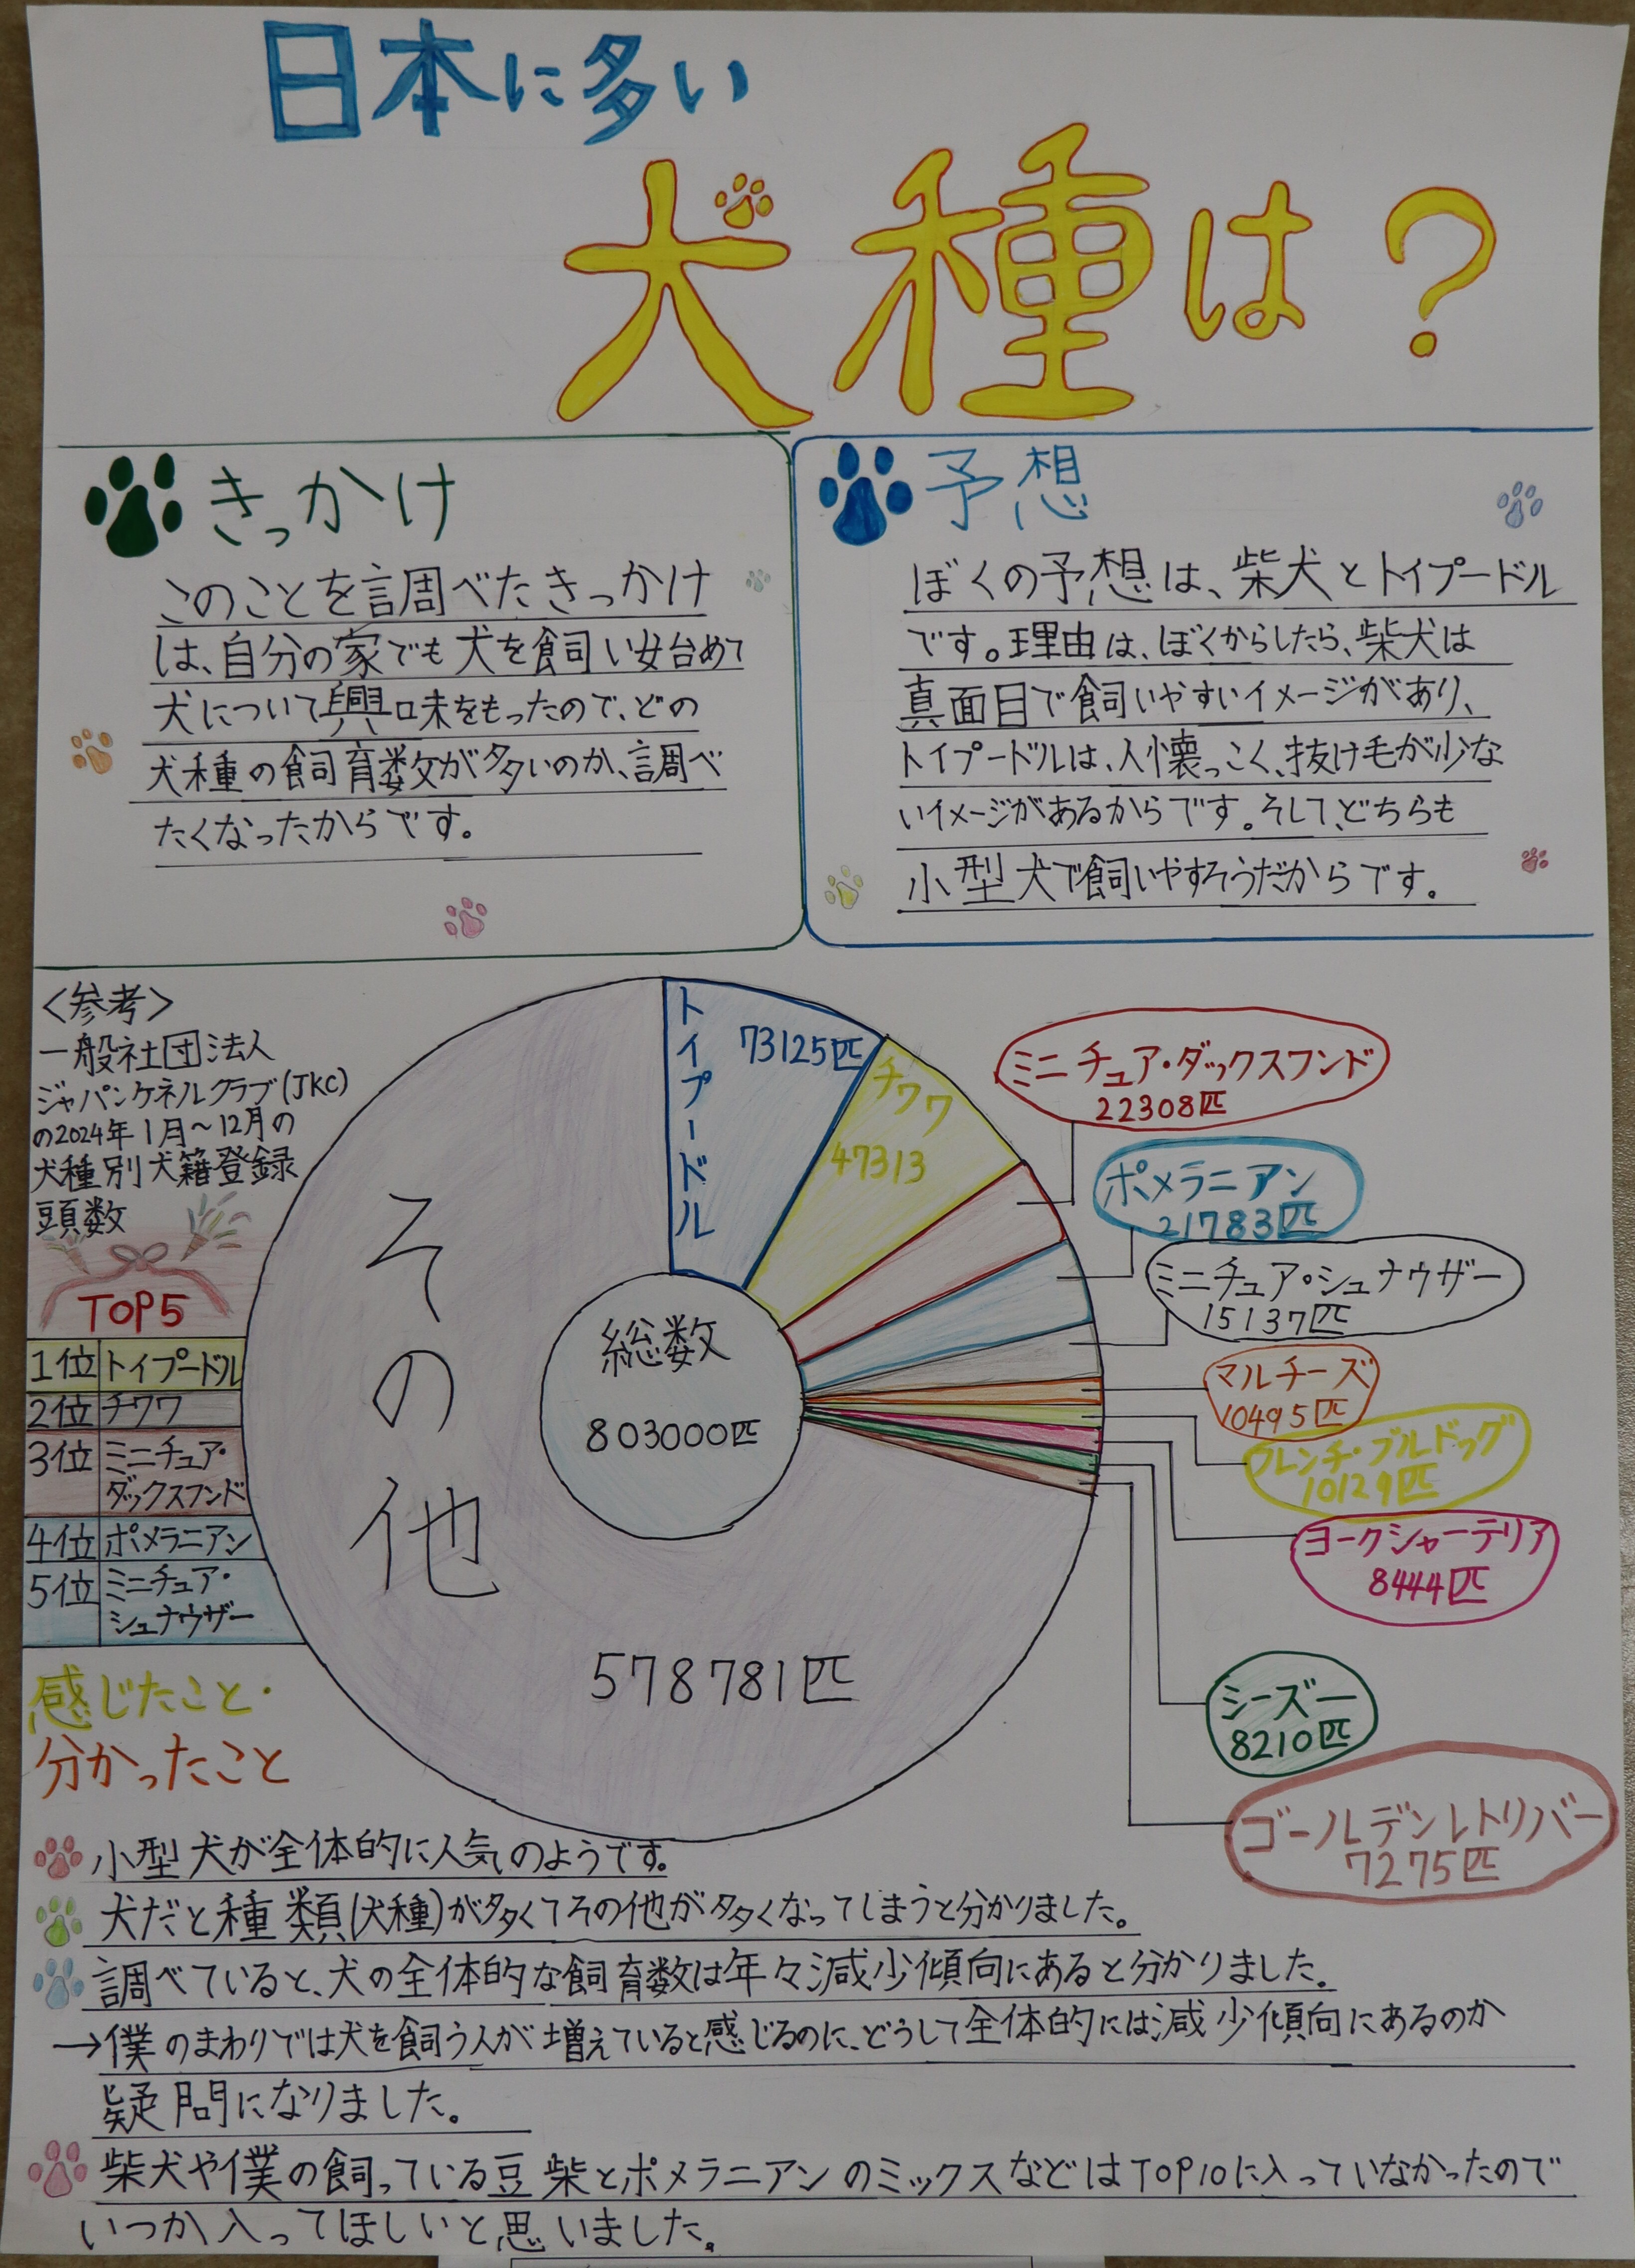 日本に多い
犬種は？
きっかけ
このことを調べたきっかけ
は、自分の家でも犬を飼い始めて
犬について興味をもったので、どの
犬種の飼育数が多いのか、調べ
たくなったからです。
予想
ぼくの予想は、柴犬とトイプードル
です。理由は、ぼくからしたら、柴犬は
真面目で飼いやすいイメージがあり、
トイプードルは、人懐っこく、抜け毛が少な
いイメージがあるからです。そして、どちらも
小型犬で飼いやすそうだからです。
〈参考〉
一般社団法人
ジャパンケネルクラブ(JKC)
の2024年1月～12月の
犬種別犬籍登録
頭数
TOP5
1位 トイプードル
2位 チワワ
3位 ミニチュア・
ダックスフンド
4位 ポメラニアン
5位 ミニチュア・
シュナウザー
トイプードル
73125匹
チワワ
47313
ミニチュア・ダックスフンド
22308匹
ポメラニアン
21783匹
ミニチュア・シュナウザー
15137匹
マルチーズ
10495匹
フレンチ・ブルドッグ
10129匹
ヨークシャーテリア
8444匹
シーズー
8210匹
ゴールデンレトリバー
7275匹
総数
803000匹
その他
578781匹
感じたこと・
分かったこと
小型犬が全体的に人気のようです。
犬だと種類(犬種)が多くてその他が多くなってしまうと分かりました。
調べていると、犬の全体的な飼育数は年々減少傾向にあると分かりました。
→僕のまわりでは犬を飼う人が増えていると感じるのに、どうして全体的には減少傾向にあるのか
疑問になりました。
柴犬や僕の飼っている豆柴とポメラニアンのミックスなどはTOP10に入っていなかったので
いつか入ってほしいと思いました。